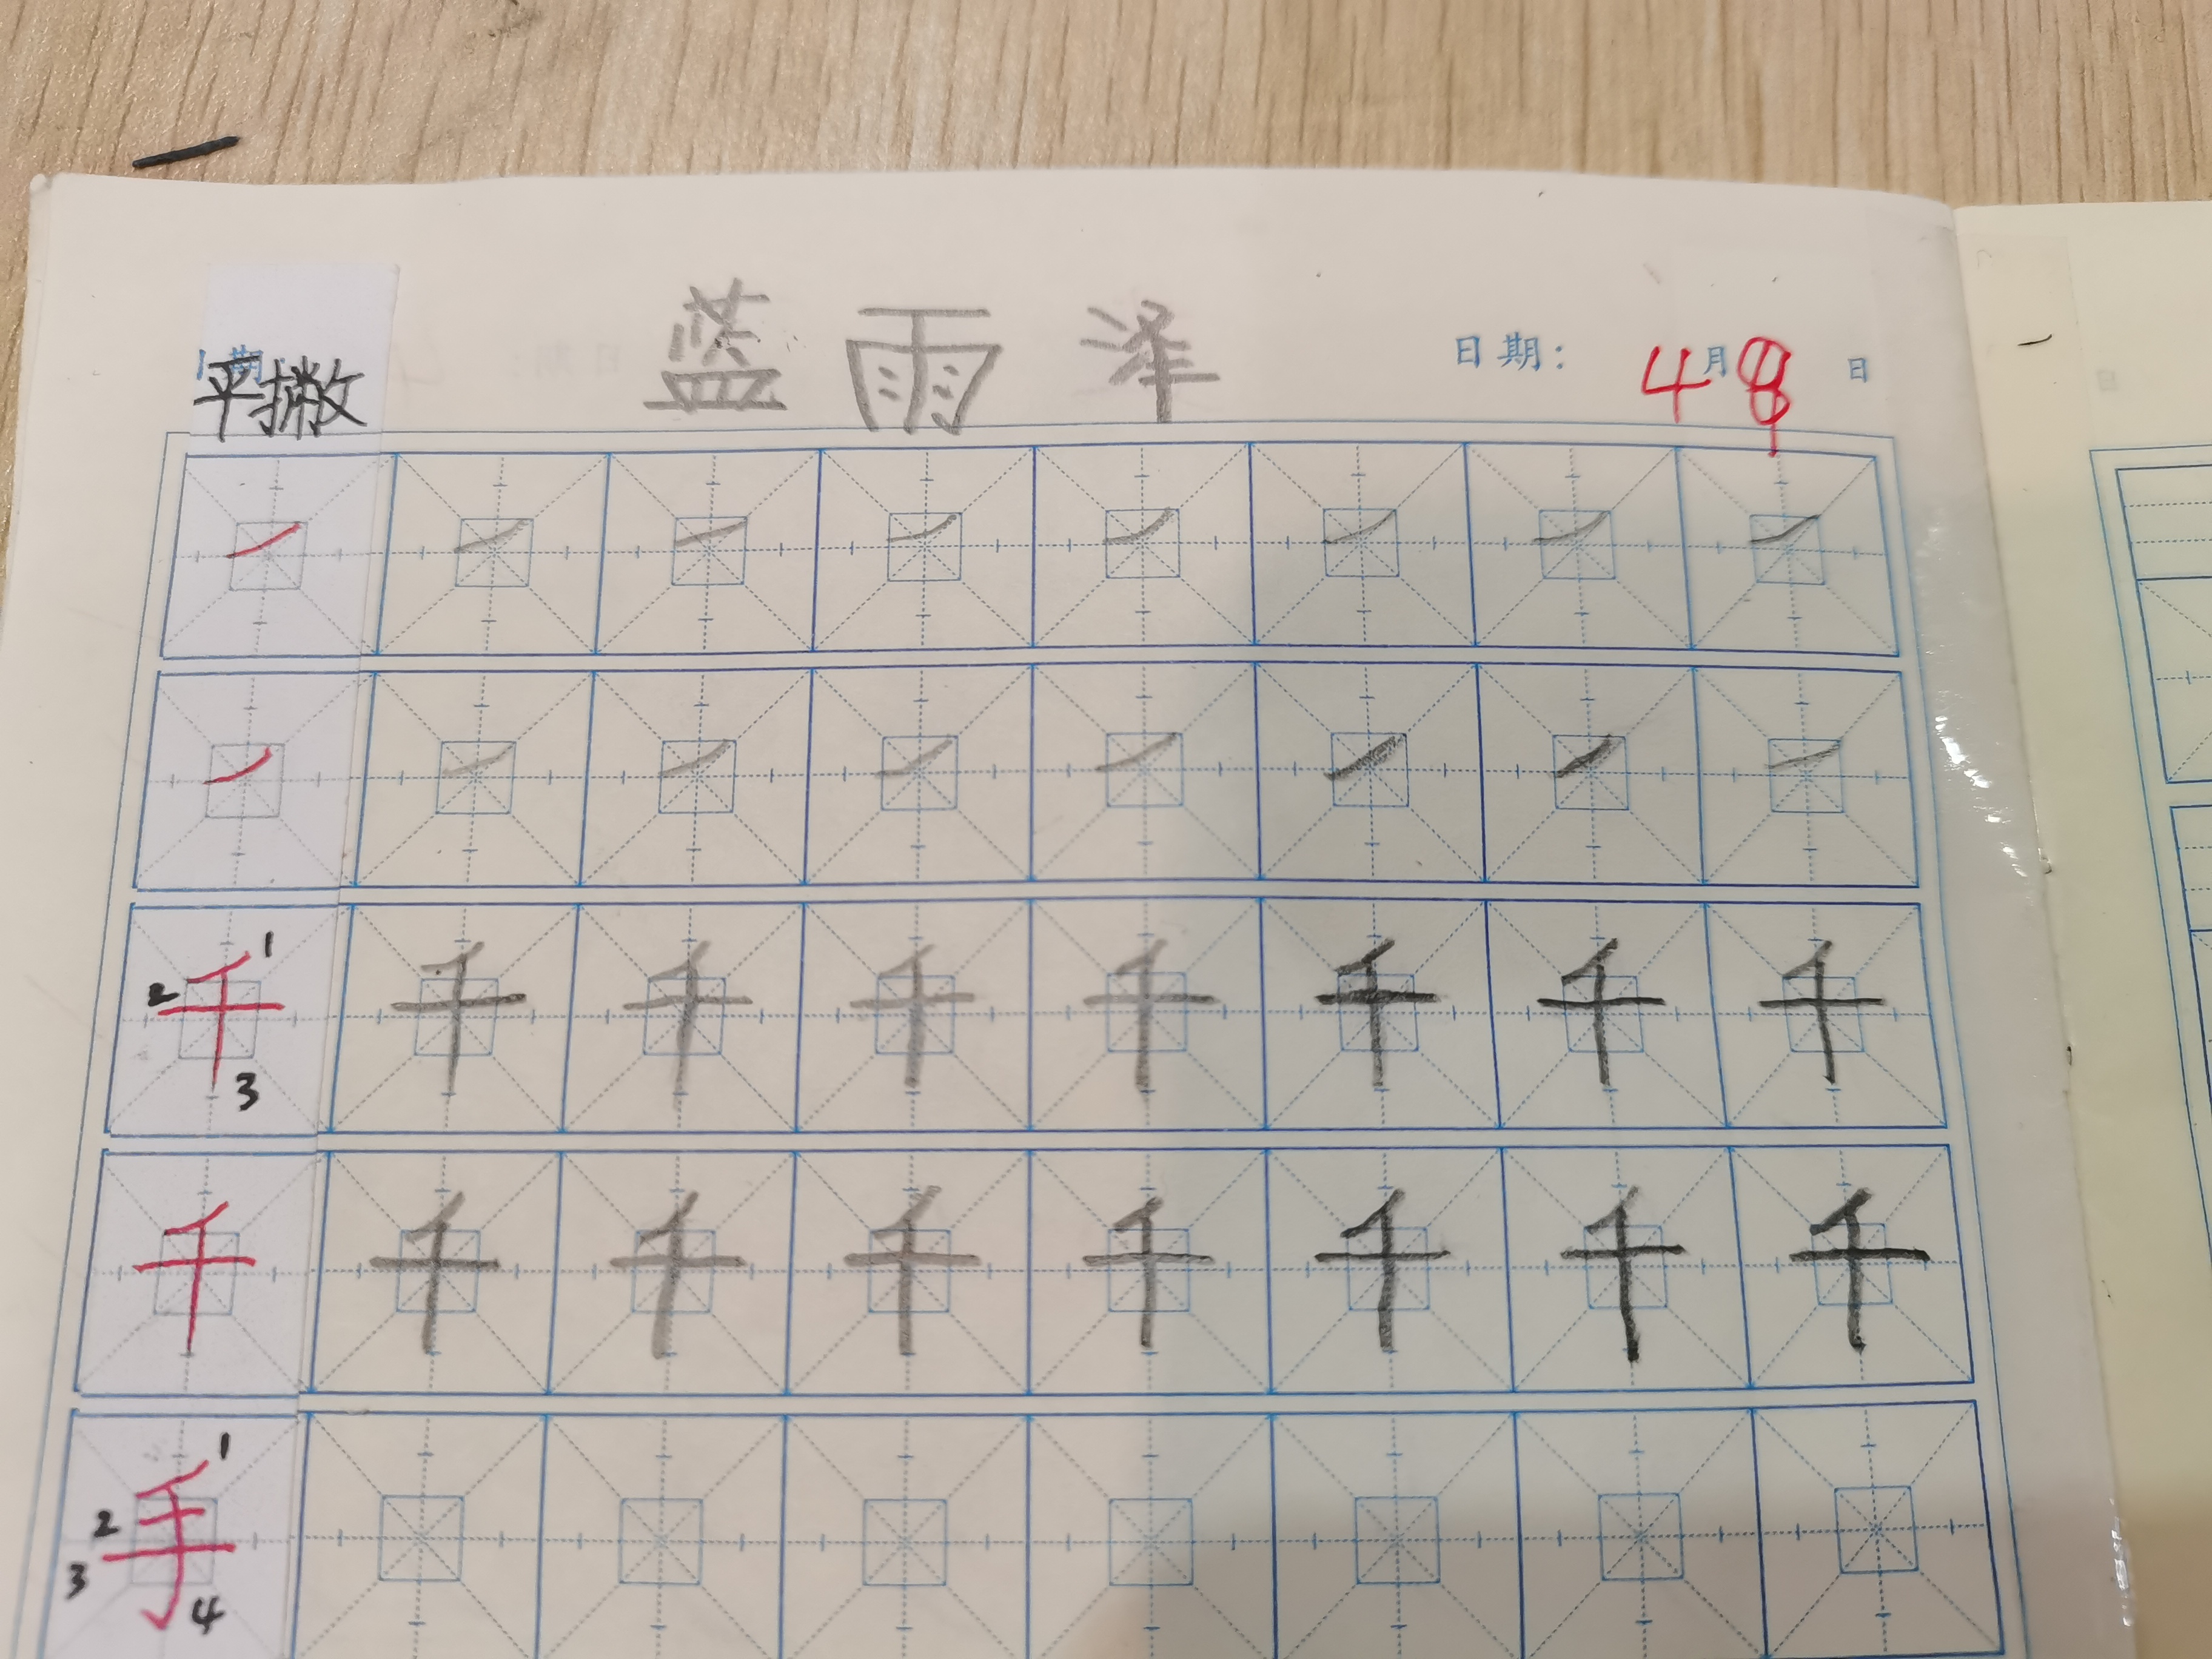 平撇 蓝雨泽 日期: 4月8日
㇒ ㇒ ㇒ ㇒ ㇒ ㇒ ㇒ ㇒
㇒ ㇒ ㇒ ㇒ ㇒ ㇒ ㇒ ㇒
1 2 3 千 千 千 千 千 千 千 千
千 千 千 千 千 千 千 千
1 2 3 4 手